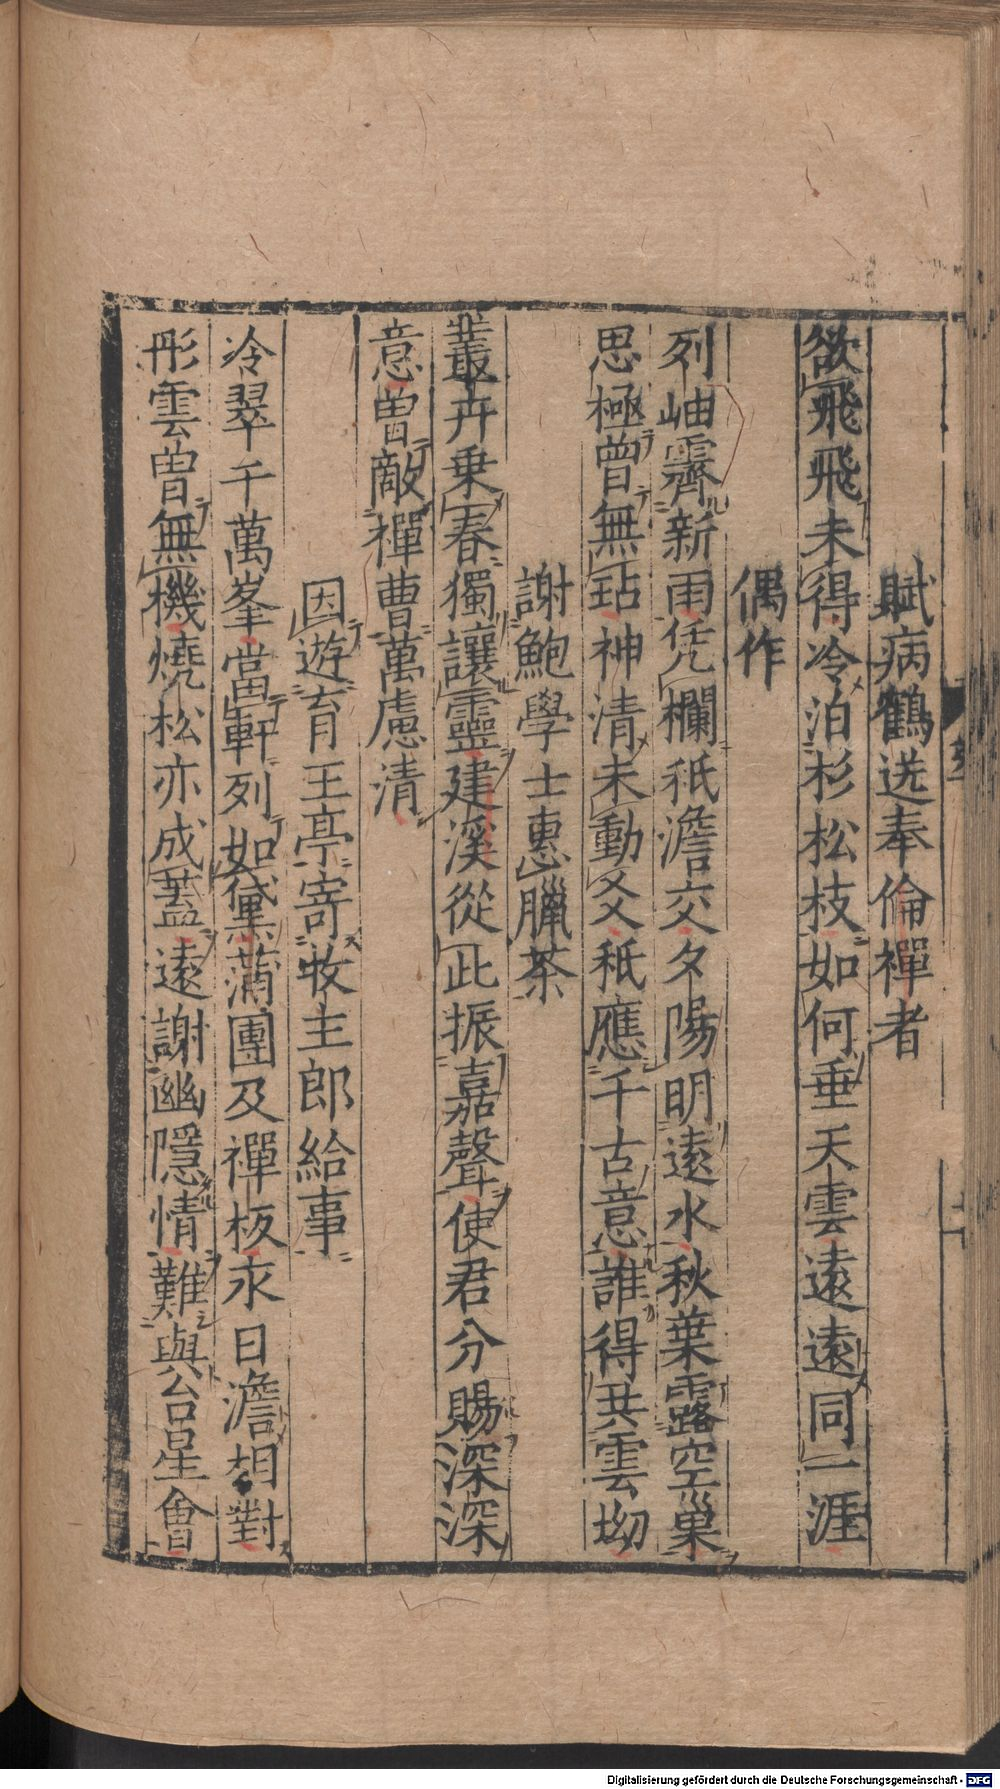 賦病鶴送奉倫禪者
欲飛飛未得冷泊杉松枝如何垂天雲遠遠同一涯
偶作
列岫霽新雨凭欄秖澹交夕陽明遠水秋葉露空巢
思極曾無玷神清未動爻秖應千古意誰得共雲坳
謝鮑學士惠臘茶
叢卉乗春獨讓靈建溪從此振嘉聲使君分賜深深
意曽敵禪曹萬慮清
因遊育王亭寄牧主郎給事
冷翠千萬峯當軒列如黛蒲團及禪板永日澹相對
彤雲曽無機燒松亦成蓋遠謝幽隱情難與台星會
Digitalisierung gefördert durch die Deutsche Forschungsgemeinschaft - DFG